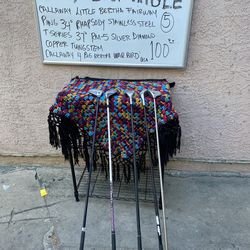 CALLAWAY LITTLE BERTHA FAIRWAY
PING 34" RHAPSODY STAINLESS STEEL 5
T SERIES 37" PM-5 SILVER DIAMOND
COPPER TUNGSTEM 100
CALLAWAY 4 BIG BERTHA WAR BIRD USA